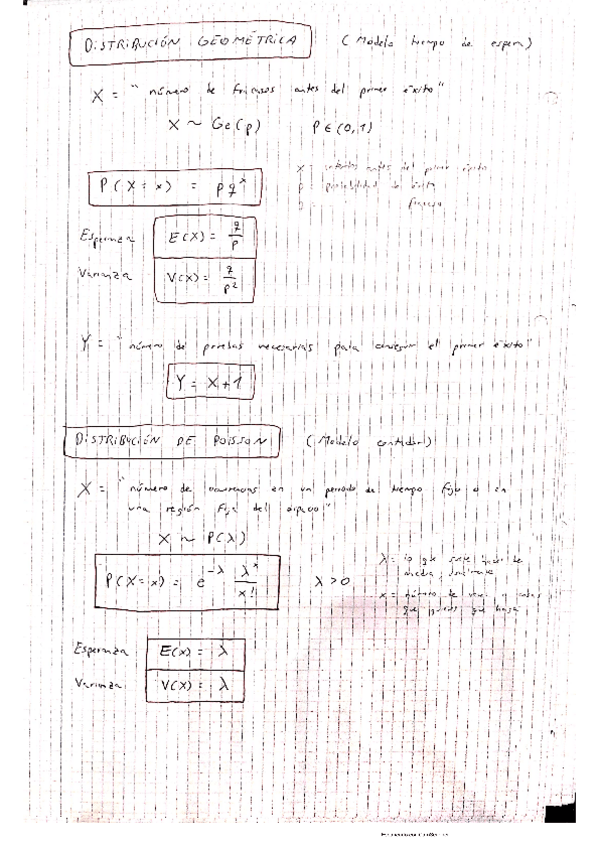 DISTRIBUCIÓN GEOMÉTRICA (Modelo tiempo de espera)
X = "número de fracasos antes del primer éxito"
X ~ Ge(p) p ∈ (0,1)
P(X=x) = p q^x
x = antes del primer éxito
p = probabilidad de éxito
q = fracaso
Esperanza E(X) = q/p
Varianza V(X) = q/p²
Y = "número de pruebas necesarias para conseguir el primer éxito"
Y = X+1
DISTRIBUCIÓN DE POISSON (Modelo contador)
X = "número de ocurrencias en un periodo de tiempo fijo o en
una región fija del espacio"
X ~ P(λ)
P(X=x) = e^-λ λ^x/x! λ > 0
λ = lo que suele de
media
x = número de veces
que quieres que haya
Esperanza E(x) = λ
Varianza V(X) = λ